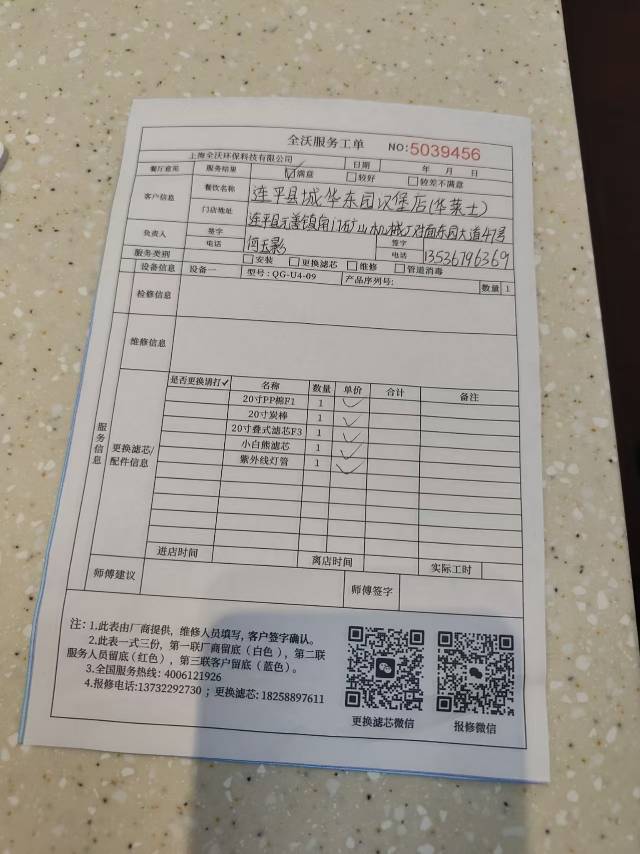 全沃服务工单 NO:5039456
上海全沃环保科技有限公司 日期 年 月 日
餐厅意见 服务结果 ☑满意 □较好 □较差不满意
客户信息 餐饮名称 连平县城华东园汉堡店(华莱士)
门店地址 连平县元善镇南门矿山机械厂对面东园大道47号
负责人 签字 电话 何玉影 签字 电话 13536796369
服务类别 □安装 □更换滤芯 □维修 □管道消毒
设备信息 设备一 型号:QG-U4-09 产品序列号: 数量 1
检修信息
维修信息
服务信息
更换滤芯/配件信息
是否更换请打✓ 名称 数量 单价 合计 备注
20寸PP棉F1 1 ✓
20寸炭棒 1 ✓
20寸叠式滤芯F3 1 ✓
小白熊滤芯 1 ✓
紫外线灯管 1 ✓
进店时间 离店时间 实际工时
师傅建议 师傅签字
注:1.此表由厂商提供,维修人员填写,客户签字确认。
2.此表一式三份,第一联厂商留底(白色),第二联
服务人员留底(红色),第三联客户留底(蓝色)。
3.全国服务热线:4006121926
4.报修电话:13732292730;更换滤芯:18258897611
更换滤芯微信 报修微信